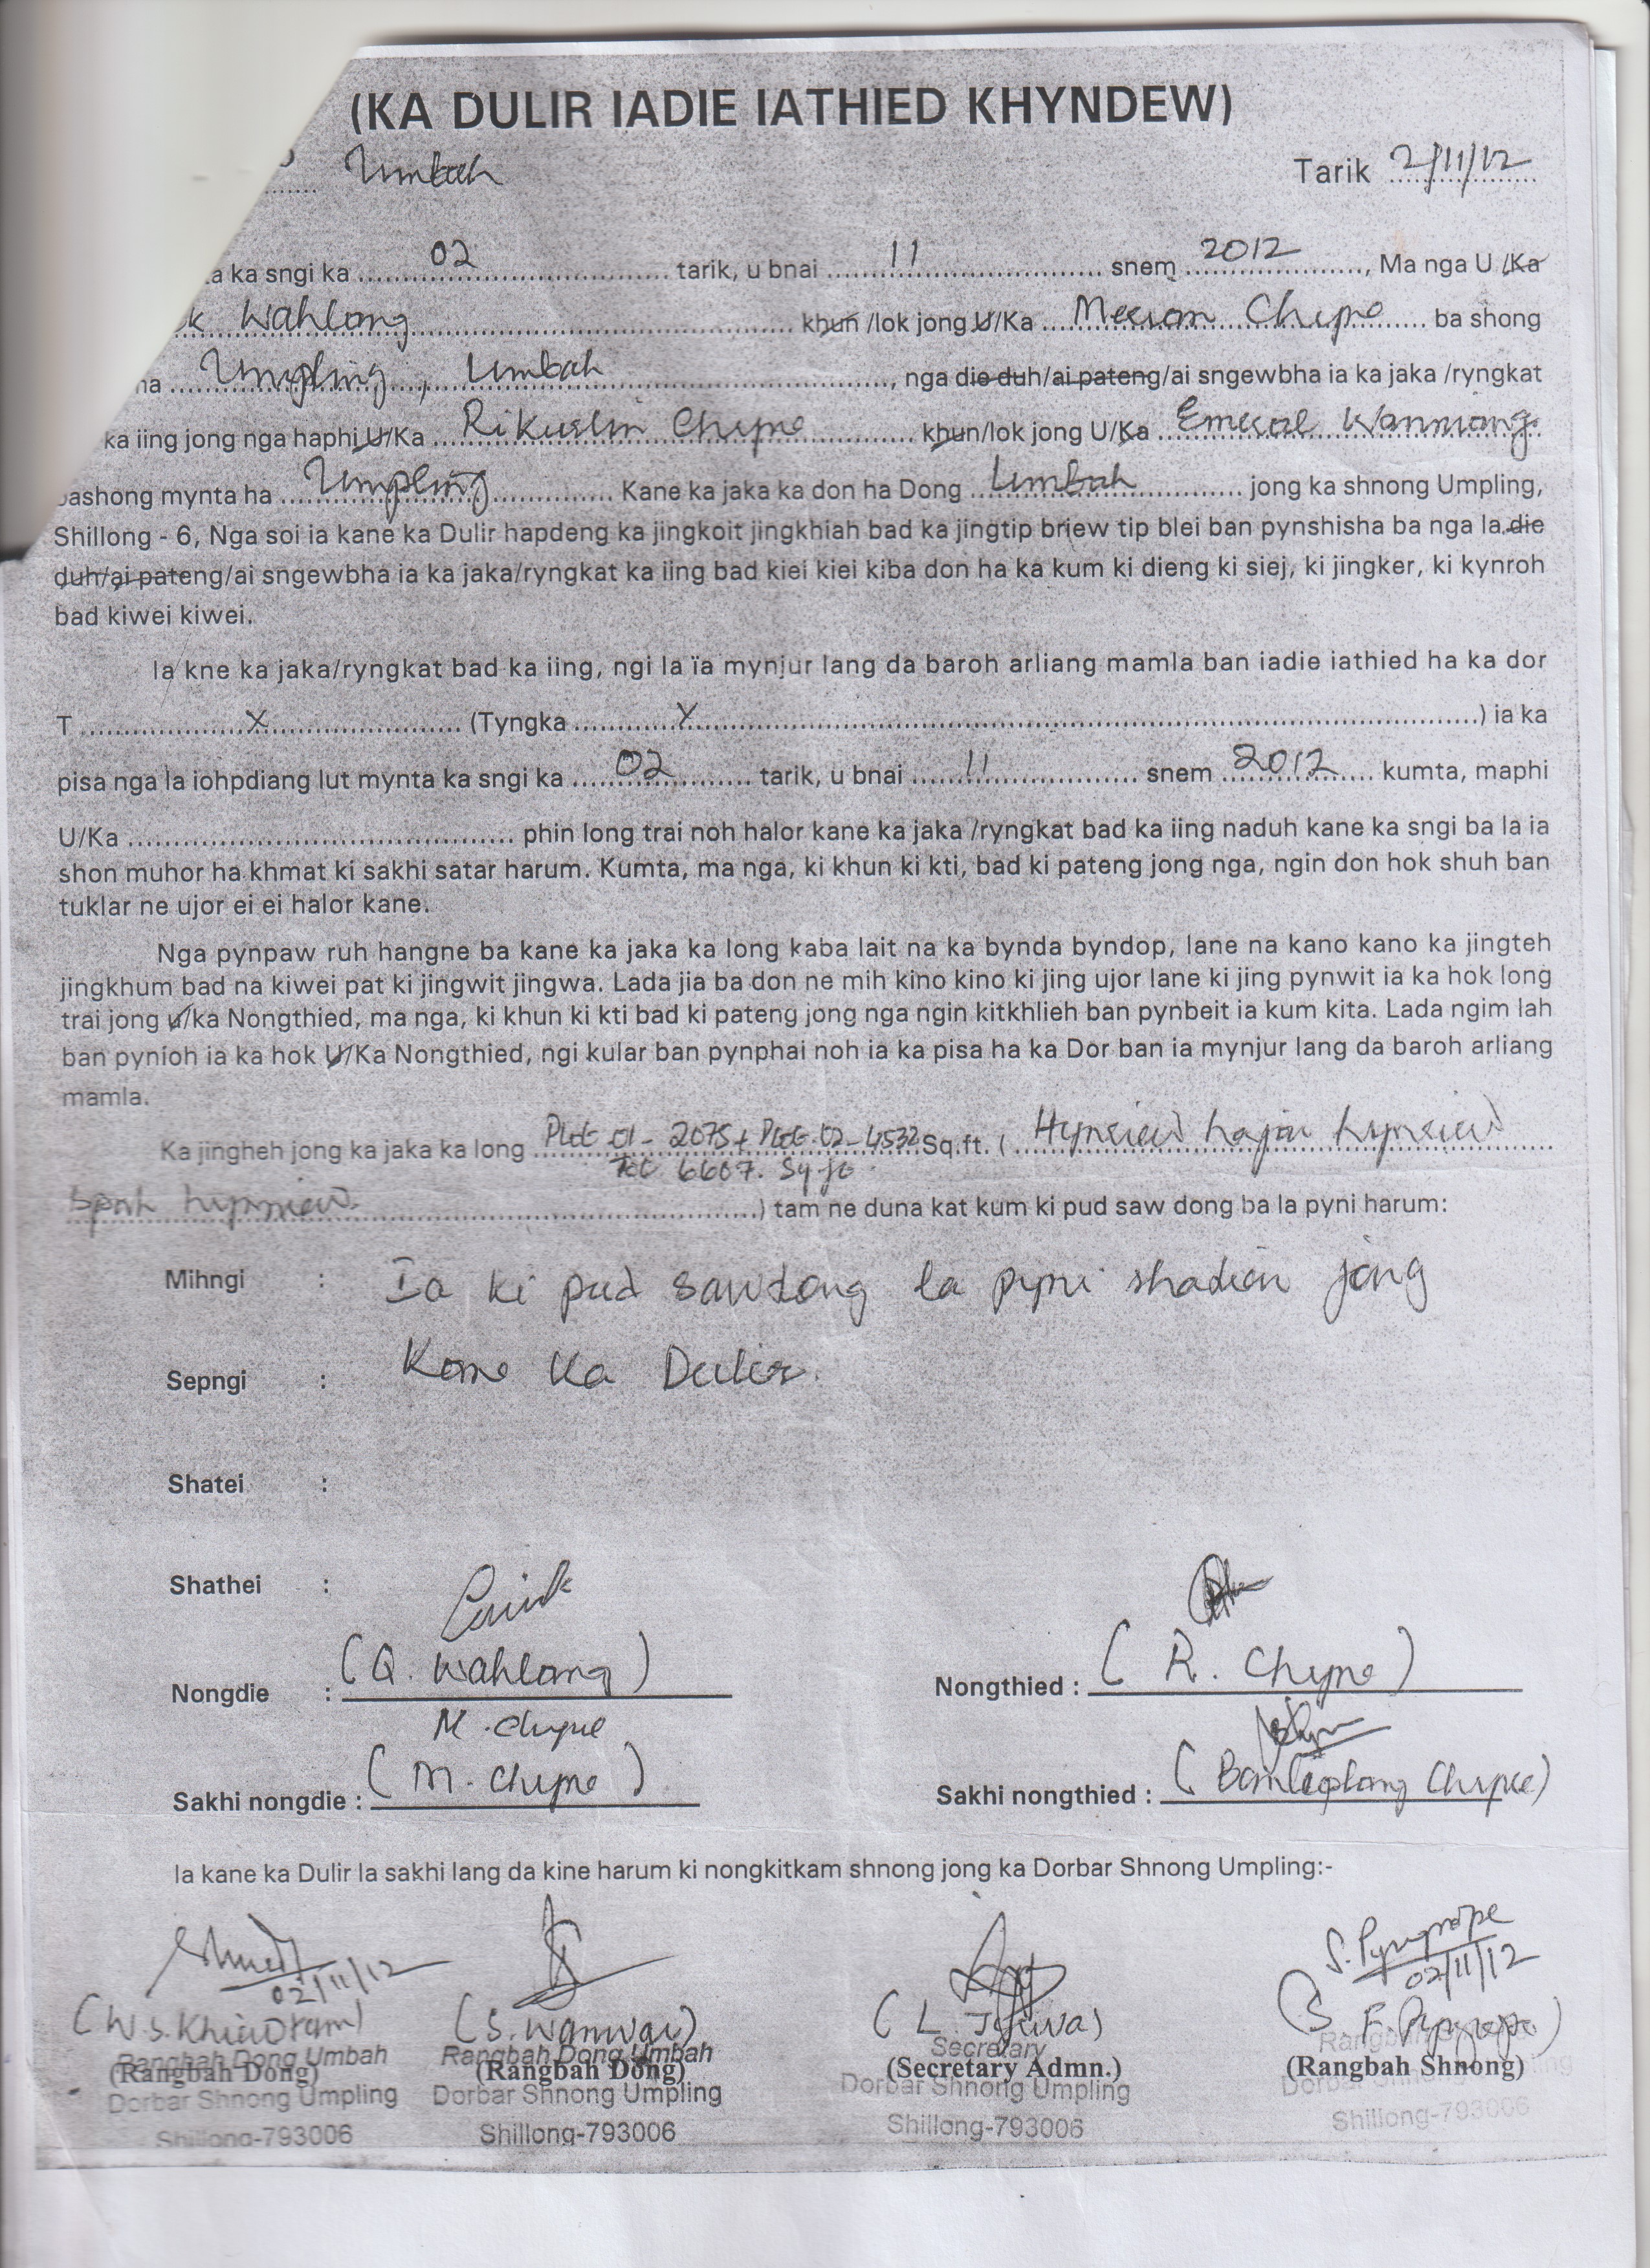 (KA DULIR IADIE IATHIED KHYNDEW)
Umbah Tarik 2/11/12
a ka sngi ka 02 tarik, u bnai 11 snem 2012, Ma nga U/Ka
k Wahlang khun /lok jong U/Ka Merian Chyne ba shong
ha Umpling, Umbah, nga die duh/ai pateng/ai sngewbha ia ka jaka /ryngkat
ka iing jong nga haphi U/Ka Rikuslin Chyne khun/lok jong U/Ka Emeral Wanniang
bashong mynta ha Umpling Kane ka jaka ka don ha Dong Umbah jong ka shnong Umpling,
Shillong - 6, Nga soi ia kane ka Dulir hapdeng ka jingkoit jingkhiah bad ka jingtip briew tip blei ban pynshisha ba nga la die
duh/ai pateng/ai sngewbha ia ka jaka/ryngkat ka iing bad kiei kiei kiba don ha ka kum ki dieng ki siej, ki jingker, ki kynroh
bad kiwei kiwei.
Ia kne ka jaka/ryngkat bad ka iing, ngi la ïa mynjur lang da baroh arliang mamla ban iadie iathied ha ka dor
T X (Tyngka X ) ia ka
pisa nga la iohpdiang lut mynta ka sngi ka 02 tarik, u bnai 11 snem 2012 kumta, maphi
U/Ka phin long trai noh halor kane ka jaka /ryngkat bad ka iing naduh kane ka sngi ba la ia
shon muhor ha khmat ki sakhi satar harum. Kumta, ma nga, ki khun ki kti, bad ki pateng jong nga, ngin don hok shuh ban
tuklar ne ujor ei ei halor kane.
Nga pynpaw ruh hangne ba kane ka jaka ka long kaba lait na ka bynda byndop, lane na kano kano ka jingteh
jingkhum bad na kiwei pat ki jingwit jingwa. Lada jia ba don ne mih kino kino ki jing ujor lane ki jing pynwit ia ka hok long
trai jong u/ka Nongthied, ma nga, ki khun ki kti bad ki pateng jong nga ngin kitkhlieh ban pynbeit ia kum kita. Lada ngim lah
ban pynioh ia ka hok U/Ka Nongthied, ngi kular ban pynphai noh ia ka pisa ha ka Dor ban ia mynjur lang da baroh arliang
mamla.
Ka jingheh jong ka jaka ka long Plot 01 - 2075 + Plot 02 - 4532 Sq.ft. ( Hynriew hajar hynriew
Tot 6607. Sq ft
spah hynniew. ) tam ne duna kat kum ki pud saw dong ba la pyni harum:
Mihngi : Ia ki pud sawdong la pyni shadien jong
Sepngi : Kane Ka Dulir.
Shatei :
Shathei :
Nongdie : (Q. Wahlang) Nongthied : (R. Chyne)
M. Chyne
Sakhi nongdie : (M. Chyne) Sakhi nongthied : (Banteiplang Chyne)
Ia kane ka Dulir la sakhi lang da kine harum ki nongkitkam shnong jong ka Dorbar Shnong Umpling:-
S. Pyngrope
02/11/12 02/11/12
(W.S. Khardram) (S. Wanwar) (S. F. Pyngrope)
Rangbah Dong Umbah Rangbah Dong Umbah Secretary Rangbah
(Rangbah Dong) (Rangbah Dong) (Secretary Admn.) (Rangbah Shnong)
Dorbar Shnong Umpling Dorbar Shnong Umpling Dorbar Shnong Umpling Dorbar Shnong Umpling
Shillong-793006 Shillong-793006 Shillong-793006 Shillong-793006